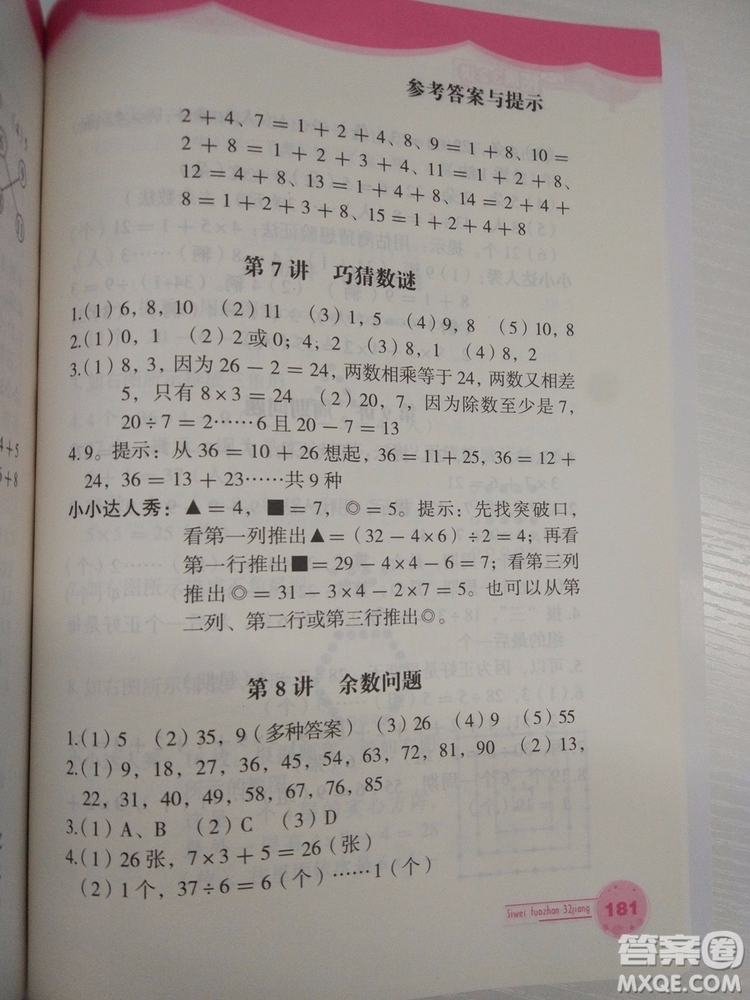 参考答案与提示
2＋4、7＝1＋2＋4、8、9＝1＋8、10＝
2＋8＝1＋2＋3＋4、11＝1＋2＋8、
12＝4＋8、13＝1＋4＋8、14＝2＋4＋
8＝1＋2＋3＋8、15＝1＋2＋4＋8
第7讲 巧猜数谜
1.(1)6，8，10 (2)11 (3)1，5 (4)9，8 (5)10，8
2.(1)0，1 (2)2或0；4，2 (3)8，1 (4)8，2
3.(1)8，3，因为26－2＝24，两数相乘等于24，两数又相差
5，只有8×3＝24 (2)20，7，因为除数至少是7，
20÷7＝2……6且20－7＝13
4.9。提示：从36＝10＋26想起，36＝11＋25，36＝12＋
24，36＝13＋23……共9种
小小达人秀：▲＝4，■＝7，◎＝5。提示：先找突破口，
看第一列推出▲＝(32－4×6)÷2＝4；再看
第一行推出■＝29－4×4－6＝7；看第三列
推出◎＝31－3×4－2×7＝5。也可以从第
二列、第二行或第三行推出◎。
第8讲 余数问题
1.(1)5 (2)35，9(多种答案) (3)26 (4)9 (5)55
2.(1)9，18，27，36，45，54，63，72，81，90 (2)13，
22，31，40，49，58，67，76，85
3.(1)A、B (2)C (3)D
4.(1)26张，7×3＋5＝26(张)
(2)1个，37÷6＝6(个)……1(个)
Siwei tuozhan 32jiang
181
答案圈
MXQE.COM